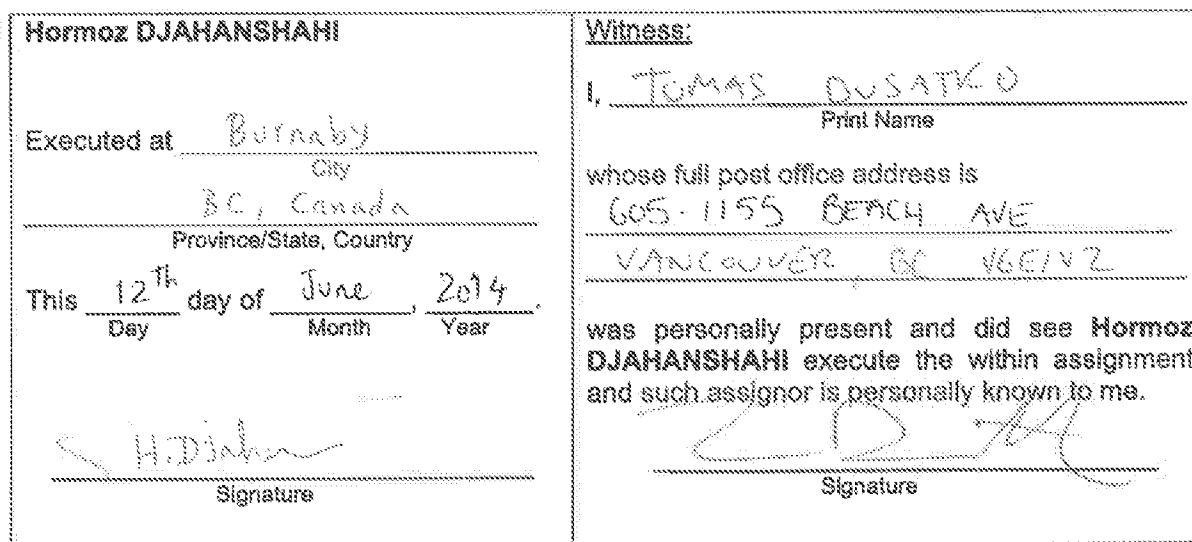 Hormoz DJAHANSHAHI
Executed at Burnaby
City
BC, Canada
Province/State, Country
This 12th day of June, 2014.
Day Month Year
H. Djahan
Signature
Witness:
I, TOMAS DUSATKO
Print Name
whose full post office address is
605-1155 BEACH AVE
VANCOUVER, BC V6E1V2
was personally present and did see Hormoz
DJAHANSHAHI execute the within assignment
and such assignor is personally known to me.
Signature